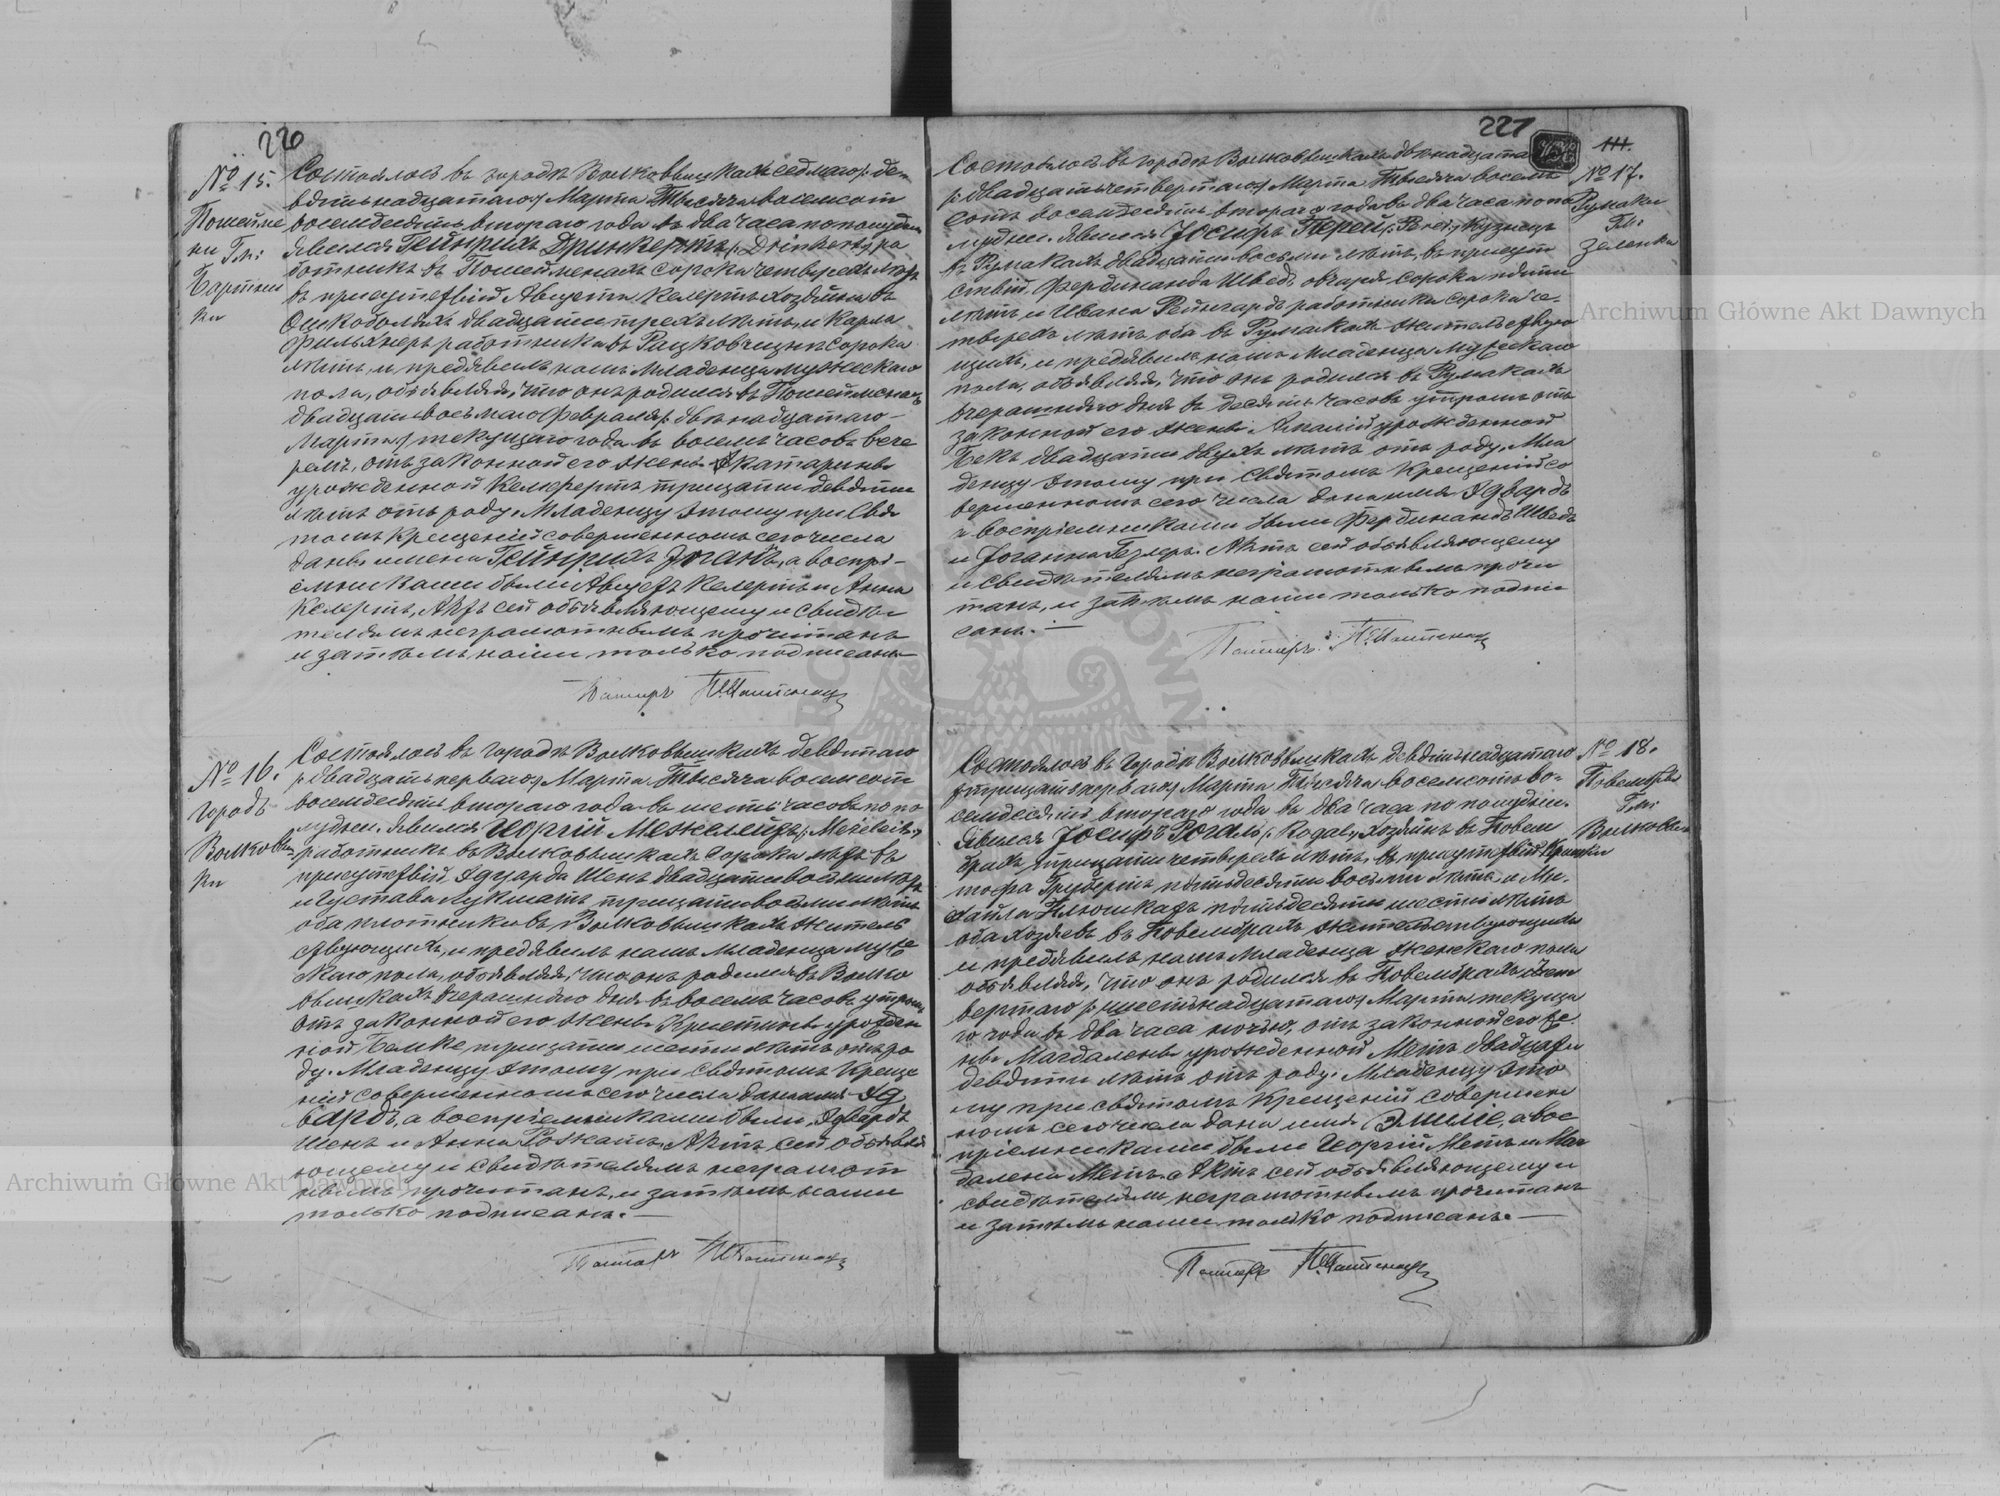 220
№ 15.
Пошейме
ни Гм:
Бартни
ки
Состоялось въ городѣ Волковышкахъ седмаго/: де-
вятьнадцатаго/ Марта Тысяча восемсотъ
восемдесятъ втораго года въ два часа пополудни
Явился Гейнрихъ Дринкертъ /: Drinkert:/ ра
ботникъ въ Пошейменахъ сорока четырехъ лѣтъ
въ присутствіи Августа Келертъ хозяина въ
двадцати трехъ лѣтъ, и Карла
работника въ сорока
лѣтъ, и предъявилъ намъ Младенца мужескаго
пола, объявляя, что онъ родился въ Пошейменахъ
двадцать восьмаго Февраля /: двѣнадцатаго
Марта/ текущаго года въ восемъ часовъ вече
ромъ, отъ законной его жены Катарины
урожденной тридцати девяти
лѣтъ отъ роду. Младенцу этому при Свя
томъ Крещеніи совершенномъ сего числа
даны имена Гейнрихъ Іоганъ, а воспрі-
емниками были Августъ Келертъ и Анна
Келертъ, Актъ сей объявляющему и Свидѣ
телямъ неграмотнымъ прочитанъ
и затѣмъ нами только подписанъ
Пасторъ
№ 16.
Городъ
Волковыш
ки
Состоялось въ городѣ Волковышкахъ девятаго
/: двадцать перваго/ Марта Тысяча восемсотъ
восемдесятъ втораго года въ шесть часовъ по по
лудни. Явился Георгій Межелейтъ /: Meżeleit:/
работникъ въ Волковышкахъ сорока лѣтъ въ
присутствіи Эдуарда Шенъ двадцати восьми лѣтъ
и Густава тридцати восьми лѣтъ
оба плотники въ Волковышкахъ житель
ствующихъ, и предъявилъ намъ Младенца муже
скаго пола, объявляя, что онъ родился въ Волко
вышкахъ вчерашняго дня въ восемъ часовъ утромъ
отъ законной его жены Кристины урожден
ной тридцати шести лѣтъ отъ ро
ду. Младенцу этому при Святомъ Креще
ніи совершенномъ сего числа дано имя Эд
вардъ, а воспріемниками были Эдвардъ
Шенъ и Анна Актъ сей объявля
ющему и свидѣтелямъ неграмот
нымъ прочитанъ, и затѣмъ нами
только подписанъ.
Пасторъ
227
111.
№ 17.
Румаки
Гм:
Зеленка
Состоялось въ городѣ Волковышкахъ двѣнадцата
/: двадцать четвертаго/ Марта Тысяча восемь
сотъ восемдесятъ втораго года въ два часа попо
лудни. Явился Іосифъ Перей кузнецъ
въ Румакахъ двадцати восьми лѣтъ, въ присут
ствіи Фердинанда Шведъ овчаря сорока пяти
лѣтъ и Ивана Рейнгардъ работника сорока че-
тырехъ лѣтъ оба въ Румакахъ жительствую
щихъ, и предъявилъ намъ Младенца мужескаго
пола, объявляя, что онъ родился въ Румакахъ
вчерашняго дня въ десять часовъ утромъ отъ
законной его жены Амаліи урожденной
Бекъ двадцати двухъ лѣтъ отъ роду. Мла
денцу этому при Святомъ Крещеніи со
вершенномъ сего числа дано имя Эдвардъ
а воспріемниками были Фердинандъ Шведъ
и Іоганна Актъ сей объявляющему
и свидѣтелямъ неграмотнымъ прочи
танъ, и затѣмъ нами только подпи
санъ.
Пасторъ
№ 18.
Повембры
Гм:
Волковыш
ки
Состоялось въ Городѣ Волковышкахъ девятьнадцатаго
/: тридцать перваго/ Марта Тысяча восемсотъ во-
семдесятъ втораго года въ два часа по полудни.
Явился Іосифъ Рогаль /: Rogal:/ хозяинъ въ Повем
брахъ тридцати четырехъ лѣтъ, въ присутствіи Крис
тофа Грубертъ пятьдесяти восьми лѣтъ и Ми-
хайла пятьдесяти шести лѣтъ
оба хозяевъ въ Повембрахъ жительствующихъ
и предъявилъ намъ Младенца женскаго пола
объявляя, что онъ родился въ Повембрахъ чет
вертаго /: шестьнадцатаго/ Марта текуща
го года въ два часа ночью, отъ законной его же
ны Магдалены урожденной Метъ двадцати
девяти лѣтъ отъ роду. Младенцу это
му при святомъ Крещеніи совершен
номъ сего числа дано имя Эмиліе, а вос
пріемниками были Георгій Метъ и Маг
далена Метъ. Актъ сей объявляющему и
свидѣтелямъ неграмотнымъ прочитанъ
и затѣмъ нами только подписанъ.
Пасторъ
Archiwum Główne Akt Dawnych
Archiwum Główne Akt Dawnych